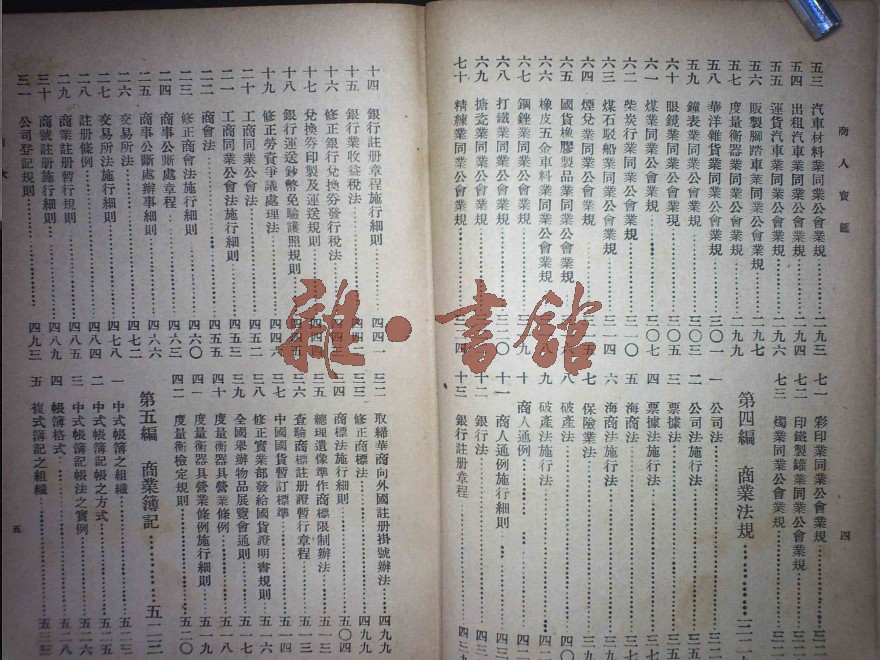 商人寶鑑
四
五三 汽車材料業同業公會業規………二九三
五四 出租汽車業同業公會業規………二九四
五五 運貨汽車業同業公會業規………二九六
五六 販製腳踏車業同業公會業規………二九七
五七 度量衡器業同業公會業規………二九九
五八 華洋雜貨業同業公會業規………三〇一
五九 鐘表業同業公會業規………三〇三
六十 眼鏡業同業公會業規………三〇五
六一 煤業同業公會業規………三〇七
六二 柴炭行業同業公會業規………三一〇
六三 煤石駁船業同業公會業規………三一四
六四 煙兌業同業公會業規
六五 國貨橡膠製品業同業公會業規
六六 橡皮五金車料業同業公會業規
六七 鋼銼業同業公會業規
六八 打鐵業同業公會業規………三二〇
六九 搪瓷業同業公會業規
七十 精練業同業公會業規
七一 彩印業同業公會業規………
七二 印鐵製罐業同業公會業規………
七三 燭業同業公會業規………
第四編 商業法規………
一 公司法………
二 公司法施行法………
三 票據法………
四 票據法施行法………
五 海商法………
六 海商法施行法………
七 保險業法………
八 破產法………
九 破產法施行法………
十 商人通例………
十一 商人通例施行細則………
十二 銀行法………
十三 銀行註册章程………
十四 銀行註册章程施行細則………四四一
十五 銀行業收益稅法………四四二
十六 修正銀行兌換券發行稅法
十七 兌換券印製及運送規則
十八 銀行運送鈔幣免驗護照規則
十九 修正勞資爭議處理法………四四六
二十 工商同業公會法………四五二
二一 工商同業公會法施行細則………四五三
二二 商會法………四五五
二三 修正商會法施行細則………四六〇
二四 商事公斷處章程………四六三
二五 商事公斷處辦事細則………四六六
二六 交易所法………四七二
二七 交易所法施行細則………四七八
二八 註册條例………四八四
二九 商業註册暫行規則………四八八
三十 商號註册施行細則………四八九
三一 公司登記規則………四九三
三二 取締華商向外國註册掛號辦法………四九九
三三 修正商標法………四九九
三四 商標法施行細則………五〇四
三五 總理遺像準作商標限制辦法………五一三
三六 查驗商標註册證暫行章程………五一三
三七 中國國貨暫訂標準………五一四
三八 修正實業部發給國貨證明書規則………五一六
三九 全國舉辦物品展覽會通則………五一七
四十 度量衡器具營業條例………五一八
四一 度量衡器具營業條例施行細則………五一九
四二 度量衡檢定規則………五二〇
第五編 商業簿記………五二三
一 中式帳簿之組織………五二三
二 中式帳簿記帳之方式………五二五
三 中式帳簿記帳法之實例………五二六
四 帳簿格式………五二八
五 複式簿記之組織………五三三
五
雜·書館